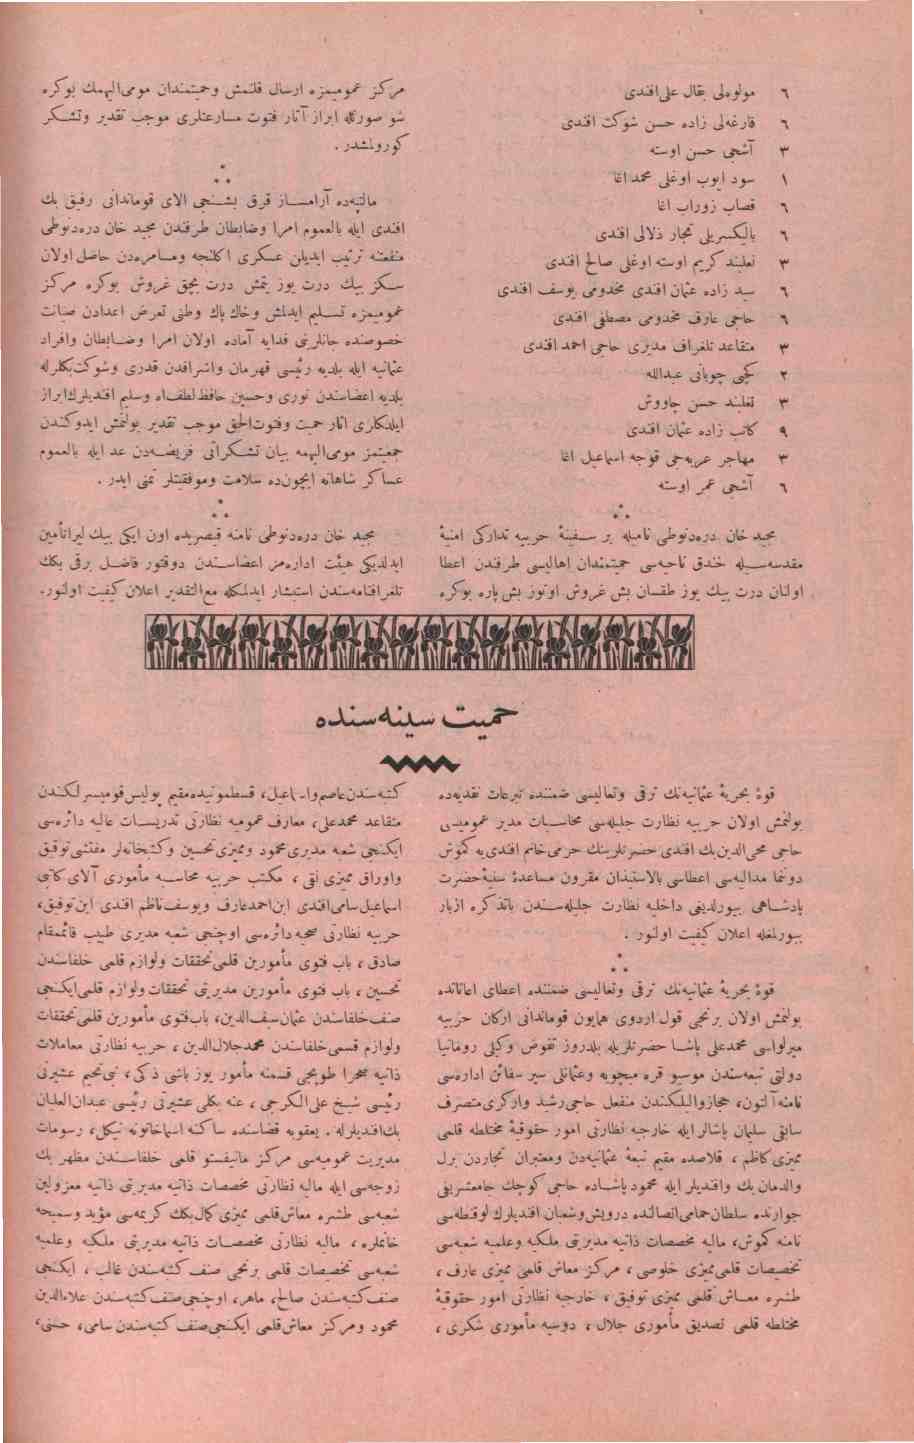 ٦ مولوه‌لی بقال علی افندی
٦ قارغه‌لی زاده حسن شوكت افندی
٣ آشجی حسن اوسته
١ سود ایوب اوغلی محمد اغا
٦ قصاب زوراب اغا
٦ بالیكسریلی تجار ذلالی افندی
٣ نعلبند كریم اوسته اوغلی صالح افندی
٦ سید زاده عثمان افندی مخدومی یوسف افندی
٦ حاجی عارف مخدومی مصطفی افندی
٣ متقاعد تلغراف مدیری حاجی احمد افندی
٢ كچی چوبانی عبدالله
٣ نعلبند حسن چاووش
٩ كاتب زاده عثمان افندی
٣ مهاجر عربه‌جی قوجه اسماعیل اغا
٦ آشجی عمر اوسته
مجید خان دره‌دنوطی نامیله بر سفینۀ حربیه تداركی امنیۀ
مقدسه‌سیله خندق ناحیه‌سی حمیتمندان اهالیسی طرفندن اعطا
اولنان درت بیك یوز طقسان بش غروش اوتوز بش پاره بوكره
مركز عمومیمزه ارسال قلنمش وحمیتمندان مومی الیهمك بوكره
شو صورتله ابراز آثار فتوت مسارعتلری موجب تقدیر وتشكر
كورولمشدر .
مالتپه‌ده آرامساز قرق بشنجی الای قوماندانی رفیق بك
افندی ایله بالعموم امرا وضابطان طرفندن مجید خان دره‌دنوطی
منفعتنه ترتیب ایدیلن عسكری اكلنجه ومسامره‌دن حاصل اولان
سكز بیك درت یوز یتمش درت بچق غروش بوكره مركز
عمومیمزه تسلیم ایدلمش وخاك پاك وطنی تعرض اعدادن صیانت
خصوصنده جانلرینی فدایه آماده اولان امرا وضابطان وافراد
عثمانیه ایله بلدیه رئیسی قهرمان واشرافدن قدری وشوكت بكلرله
بلدیه اعضاسندن نوری وحسین حافظ لطف‌اه وسلیم افندیلرك ابراز
ایلدكاری اثار حمیت وفتوت الحق موجب تقدیر بولنمش ایدوكندن
جمعیتمز مومی الیهمه بیان تشكراتی فریضه‌دن عد ایله بالعموم
عساكر شاهانه ایچون‌ده سلامت وموفقیتلر تمنی ایدر .
مجید خان دره‌دنوطی نامنه قیصریده اون ایكی بیك لیرا تأمین
ایدلدیكی هیئت اداره‌مز اعضاسندن دوقتور فاضل برقی بكك
تلغرافنامه‌سندن استبشار ایدلمكله مع التقدیر اعلان كیفیت اولنور.
حمیت سینه‌سنده
قوۀ بحریۀ عثمانیه‌نك ترقی وتعالیسی ضمننده تبرعات نقدیه‌ده
بولنمش اولان حربیه نظارت جلیله‌سی محاسبات مدیر عمومیسی
حاجی محی الدین بك افندی حضرتلرینك حرمی خانم افندی‌یه كموش
دونما مدالیه‌سی اعطاسی بالاستیذان مقرون مساعدۀ سنیۀ حضرت
پادشاهی بیورلدیغی داخلیه نظارت جلیله‌سندن باتذكره ازبار
بیورلمغله اعلان كیفیت اولنور .
قوۀ بحریۀ عثمانیه‌نك ترقی وتعالیسی ضمننده اعطای اعاناتده
بولنمش اولان برنجی قول اردوی همایون قوماندانی اركان حربیه
میرلواسی محمد علی پاشا حضرتلریله بلدروز تفوض وكیلی رومانیا
دولتی تبعه‌سندن موسیو قره میچویه وعثمانلی سیر سفائن اداره‌سی
نامنه آلتون، حجاز والیلكندن منفعل حاجی رشید وازكری متصرف
سابقی سلیمان پاشالر ایله خارجیه نظارتی امور حقوقیۀ مختلطه قلمی
ممیزی كاظم ، قلاصده مقیم تبعۀ عثمانیه‌دن ومعتبران تجاردن برل
والدمان بك وافندیلر ایله محمود پاشاده حاجی كوچك جامعشریفی
جوارنده سلطان حمامی اتصالنده درویش وشعبان افندیلرك لوقنطه‌سی
نامنه كموش، مالیه مخصصات ذاتیه مدیریتی ملكیه وعلمیه شعبه‌سی
تخصیصات قلمی ممیزی خلوصی ، مركز معاش قلمی ممیزی عارف ،
طشره معاش قلمی ممیزی توفیق ، خارجیه نظارتی امور حقوقیۀ
مختلطه قلمی تصدیق مأموری جلال ، دوسیه مأموری شكری ،
كتبه‌سندن عاصم واسماعیل، قسطمونیده مقیم پولیس قومیسرلكندن
متقاعد محمد علی، معارف عمومیه نظارتی تدریسات عالیه دائره‌سی
ایكنجی شعبه مدیری محمود وممیزی تحسین وكتبخانه‌لر مفتشی توفیق
واوراق ممیزی تقی ، مكتب حربیه محاسبه مأموری آلای كاتبی
اسماعیل سامی افندی ابن احمد عارف ویوسف ناظم افندی ابن توفیق،
حربیه نظارتی صحیه دائره‌سی اوچنجی شعبه مدیری طبیب قائممقام
صادق ، باب فتوی مأمورین قلمی تحققات ولوازم قلمی خلفاسندن
تحسین ، باب فتوی مأمورین مدیریتی تحققات ولوازم قلمی ایكنجی
صنف خلفاسندن عثمان سف الدین، باب فتوی مأمورین قلمی تحققات
ولوازم قسمی خلفاسندن محمد جلال الدین ، حربیه نظارتی معاملات
ذاتیه صحرا طوبجی قسمنه مأمور یوز باشی ذكی، نبی تحیم عشیرتی
رئیسی شیخ علی الكرجی ، عنه بكلی عشیرتی رئیسی عبدان العلیان
بك افندیلرله . یعقوبه قضاسنده ساكنه اسما خاتونه نیكل، رسومات
مدیریت عمومیه‌سی مركز مانیفستو قلمی خلفاسندن مظهر بك
زوجه‌سی ایله مالیه نظارتی مخصصات ذاتیه مدیریتی ذاتیه معزولین
شعبه‌سی طشره معاش قلمی ممیزی كمال بكك كریمه‌سی مؤید وسمیحه
خانملره ، مالیه نظارتی مخصصات ذاتیه مدیریتی ملكیه وعلمیه
شعبه‌سی تخصیصات قلمی برنجی صنف كتبه‌سندن غالب ، ایكنجی
صنف كتبه‌سندن صالح، ماهر، اوچنجی صنف كتبه‌سندن علاء الدین
محمود ومركز معاش قلمی ایكنجی صنف كتبه‌سندن سامی، حسنی،